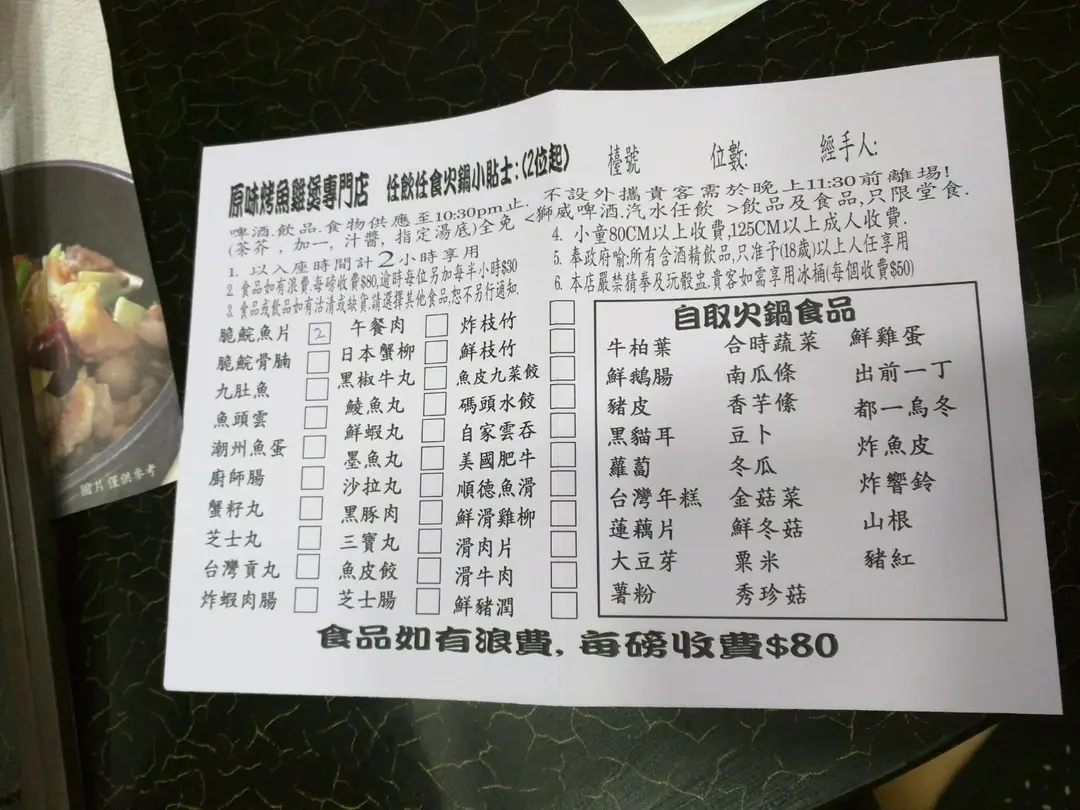 原味烤魚雞煲專門店 任飲任食火鍋小貼士:(2位起) 檯號 位數: 經手人:
啤酒.飲品.食物供應至10:30pm止. 不設外攜貴客需於晚上11:30前離場!
(茶芥，加一，汁醬，指定湯底)全免 <獅威啤酒.汽水任飲 >飲品及食品,只限堂食.
1. 以入座時間計2小時享用
2. 食品如有浪費,每磅收費$80,逾時每位另加每半小時$30
3. 食品或飲品如有沽清或缺貨.請選擇其他食品,恕不另行通知.
4. 小童80CM以上收費,125CM以上成人收費.
5. 奉政府喻:所有含酒精飲品,只准予(18歲)以上人任享用
6. 本店嚴禁猜拳及玩骰盅.貴客如需享用冰桶(每個收費$50)
脆鯇魚片 2 午餐肉 炸枝竹
脆鯇骨腩 日本蟹柳 鮮枝竹
九肚魚 黑椒牛丸 魚皮九菜餃
魚頭雲 鯪魚丸 碼頭水餃
潮州魚蛋 鮮蝦丸 自家雲吞
廚師腸 墨魚丸 美國肥牛
蟹籽丸 沙拉丸 順德魚滑
芝士丸 黑豚肉 鮮滑雞柳
台灣貢丸 三寶丸 滑肉片
炸蝦肉腸 魚皮餃 滑牛肉
芝士腸 鮮豬潤
自取火鍋食品
牛柏葉 合時蔬菜 鮮雞蛋
鮮鵝腸 南瓜條 出前一丁
豬皮 香芋條 都一烏冬
黑貓耳 豆卜 炸魚皮
蘿蔔 冬瓜 炸響鈴
台灣年糕 金菇菜 山根
蓮藕片 鮮冬菇 豬紅
大豆芽 粟米
薯粉 秀珍菇
食品如有浪費, 每磅收費$80
圖片僅供參考